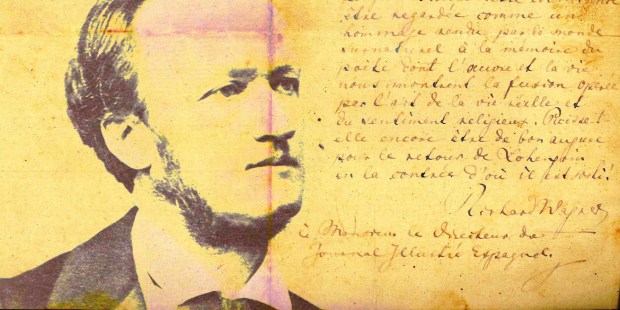 être regardée comme un
hommage rendu par le monde
surnaturel à la mémoire du
poëte dont l'œuvre et la vie
nous montrent la fusion opérée
par l'art de la vie réelle et
du sentiment religieux. Puisse-t-
elle encore être de bon augure
pour le retour de Lohengrin
en la contrée d'où il est sorti!
Richard Wagner
à Monsieur le Directeur du
Journal Illustré Espagnol.